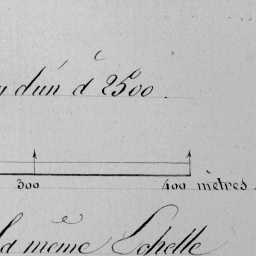 d'un à 2500.
300 400 mètres.
la même Echelle